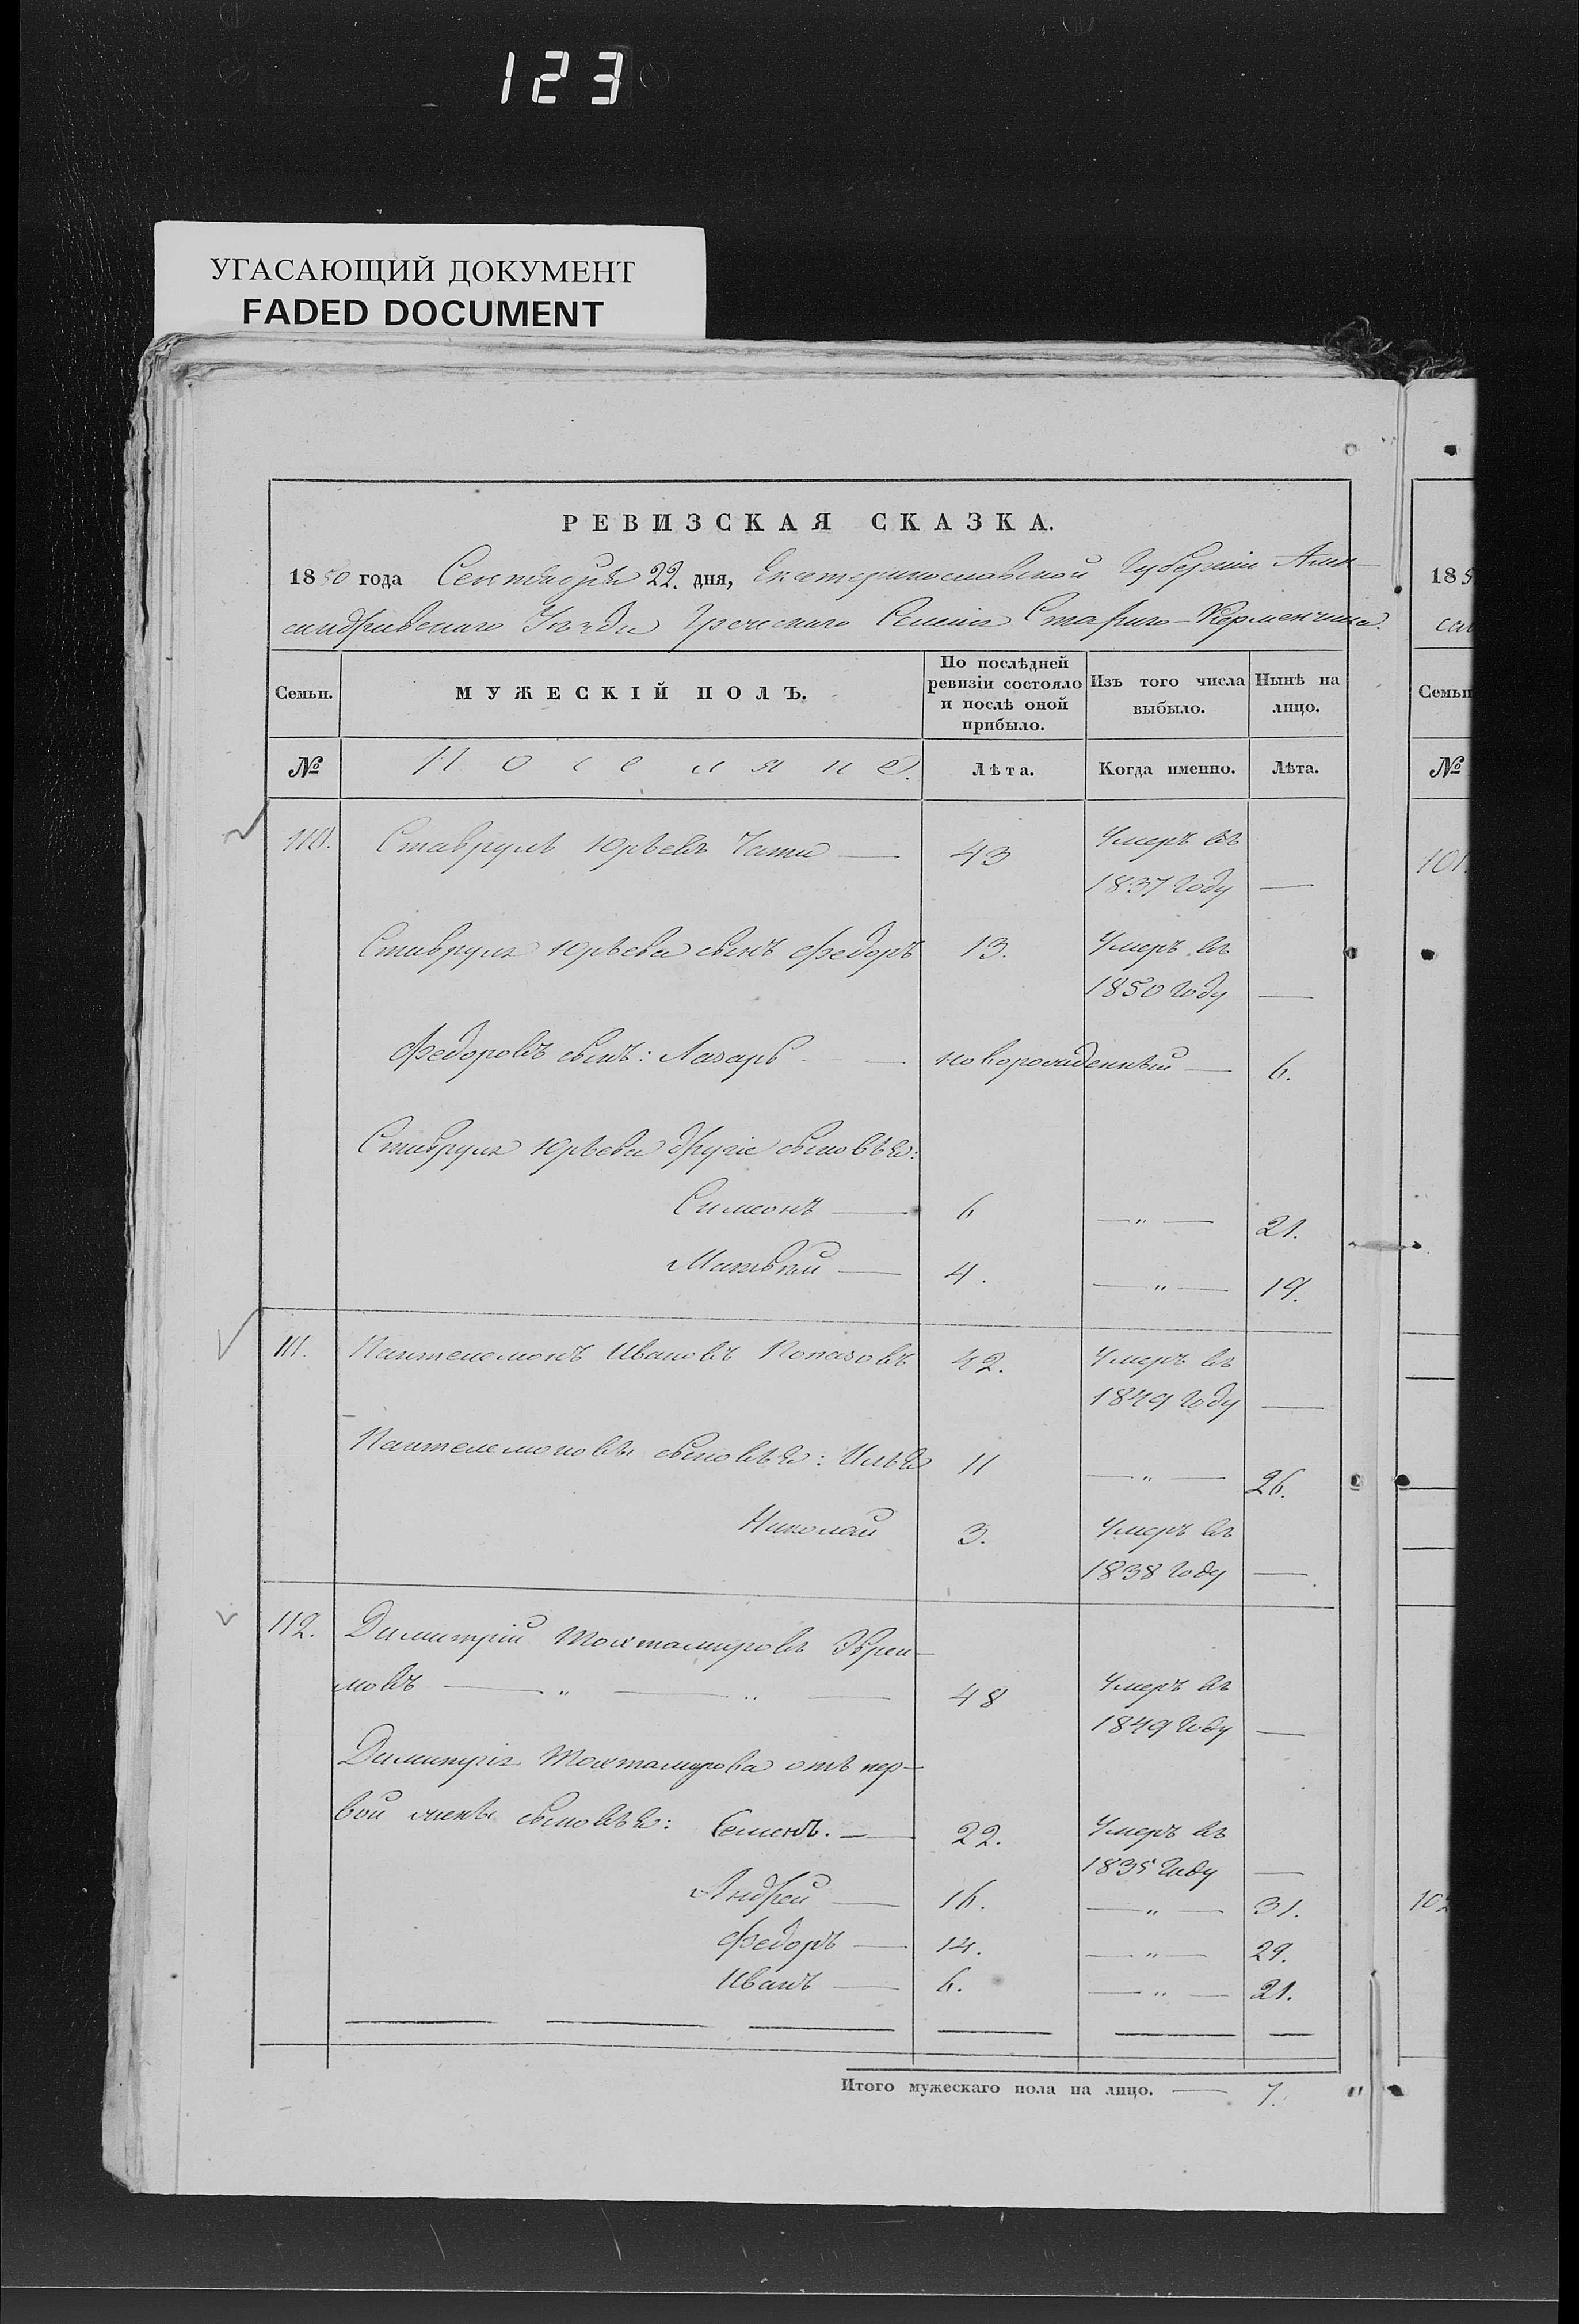 123
УГАСАЮЩИЙ ДОКУМЕНТ
FADED DOCUMENT
РЕВИЗСКАЯ СКАЗКА.
1850 года Сентября 22. дня, Екатеринославской Губерніи Алек-
сандрівскаго Уѣзда Греческаго Селенія Стараго-Керменчика.
Семьи.
МУЖЕСКІЙ ПОЛЪ.
По послѣдней ревизіи состояло и послѣ оной прибыло.
Изъ того числа выбыло.
Нынѣ на лицо.
№
Поселяне.
Лѣта.
Когда именно.
Лѣта.
110. Ставрулъ Юрьевъ Чати — 43 Умеръ въ
1837 году —
Ставрула Юрьева сынъ Федоръ 13. Умеръ въ
1850 году —
Федоровъ сынъ: Лазарь — новорожденный — 6.
Ставрула Юрьева другіе сыновья:
Симеонъ — 6 — „ — 21.
Матвѣй — 4. — „ — 19.
111. Пантелемонъ Ивановъ Попазовъ 42. Умеръ въ
1849 году —
Пантелемоновы сыновья: Илья 11 — „ — 26.
Николай 3. Умеръ въ
1838 году —
112. Димитрій Тохтамировъ Эфреи-
мовъ — „ — „ — 48 Умеръ въ
1849 году —
Димитрія Тохтамирова отъ пер-
вой жены сыновья: Семенъ. — 22. Умеръ въ
1835 году —
Андрей — 16. — „ — 31.
Федоръ — 14. — „ — 29.
Иванъ — 6. — „ — 21.
Итого мужескаго пола на лицо. — 7.
185
сан
Семьи
№
101
102